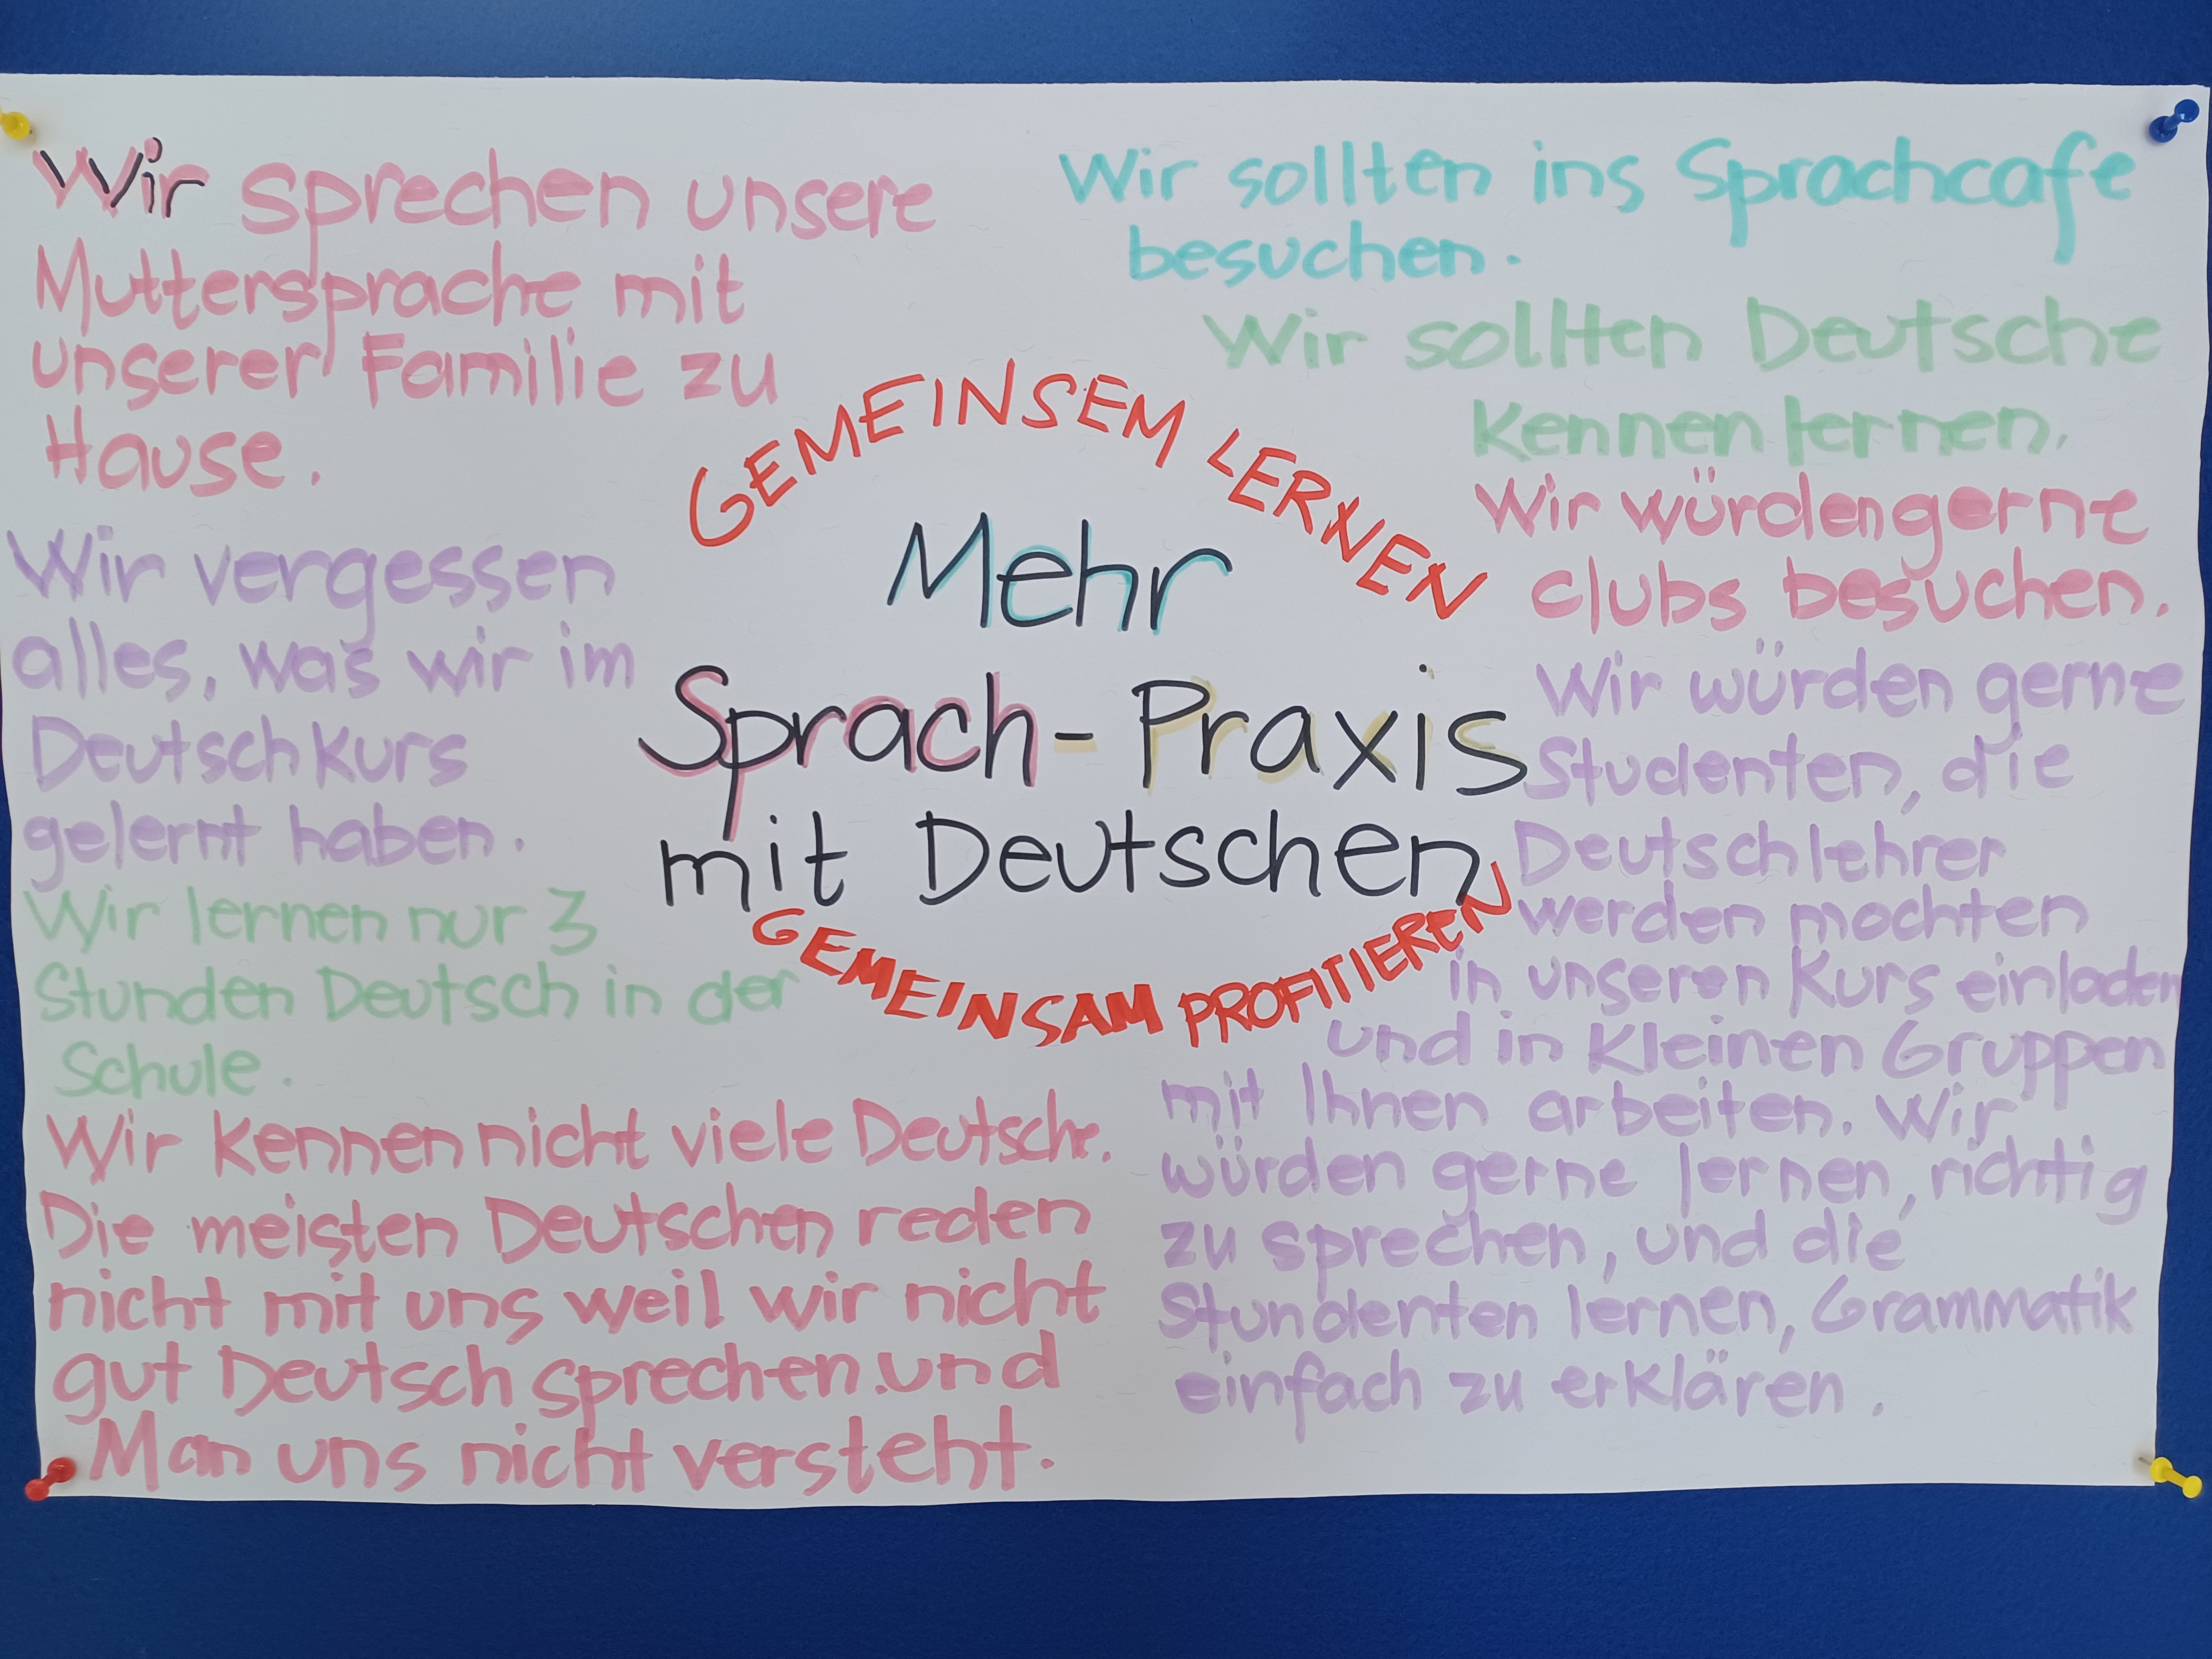 Wir sprechen unsere
Muttersprache mit
unserer Familie zu
Hause.
Wir vergessen
alles, was wir im
Deutschkurs
gelernt haben.
Wir lernen nur 3
Stunden Deutsch in der
Schule.
Wir kennen nicht viele Deutsche.
Die meisten Deutschen reden
nicht mit uns weil wir nicht
gut Deutsch sprechen.und
Man uns nicht versteht.
GEMEINSEM LERNEN
Mehr
Sprach-Praxis
mit Deutschen
GEMEINSAM PROFITIEREN
Wir sollten ins Sprachcafe
besuchen.
Wir sollten Deutsche
kennen lernen.
Wir würden gerne
clubs besuchen.
Wir würden gerne
Studenten, die
Deutschlehrer
werden mochten
in unseren Kurs einladen
und in kleinen Gruppen
mit Ihnen arbeiten. Wir
würden gerne lernen, richtig
zu sprechen, und die
Stundenten lernen, Grammatik
einfach zu erklären.